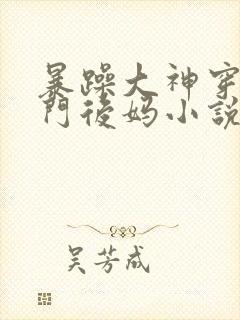 暴躁大神穿
门後妈小説
吴芳成